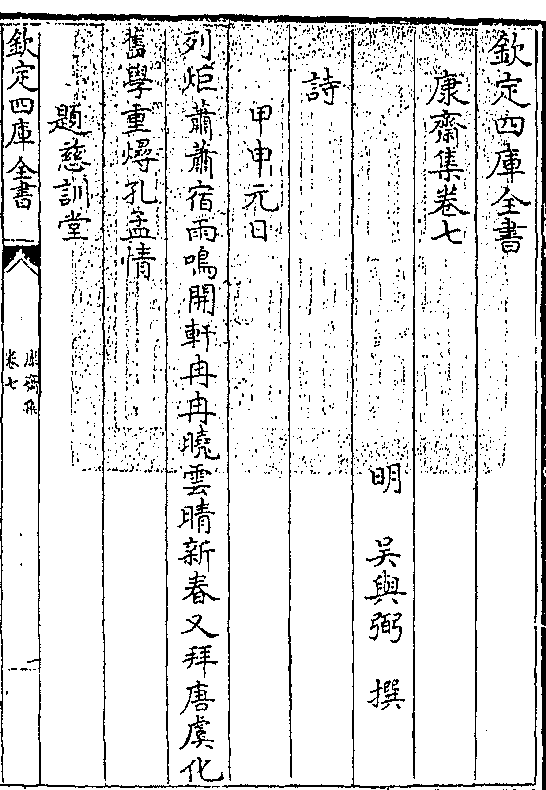 欽定四庫全書
康齋集卷七
明 吴與弼 撰
詩
甲申元日
列炬蕭蕭宿雨鳴開軒冉冉曉雲晴新春又拜唐虞化
舊學重燖孔孟情
題慈訓堂
欽定四庫全書
康齋集
卷七
一